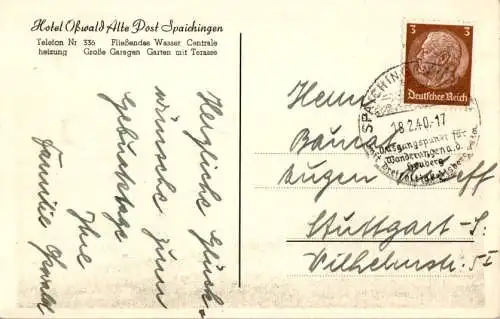 Hotel Oßwald Alte Post Spaichingen
Telefon Nr 336 Fließendes Wasser Centrale
heizung Große Garagen Garten mit Terasse
Herzliche Glück-
wünsche zum
Geburtstage
Ihre
Familie Oßwald
3 3
Deutsches Reich
SPAICHINGEN
18.2.40.-17
Ausgangspunkt für
Wanderungen a. d.
Heuberg
Herrn
Eugen
Stuttgart-S.
Wilhelmstr. 5I